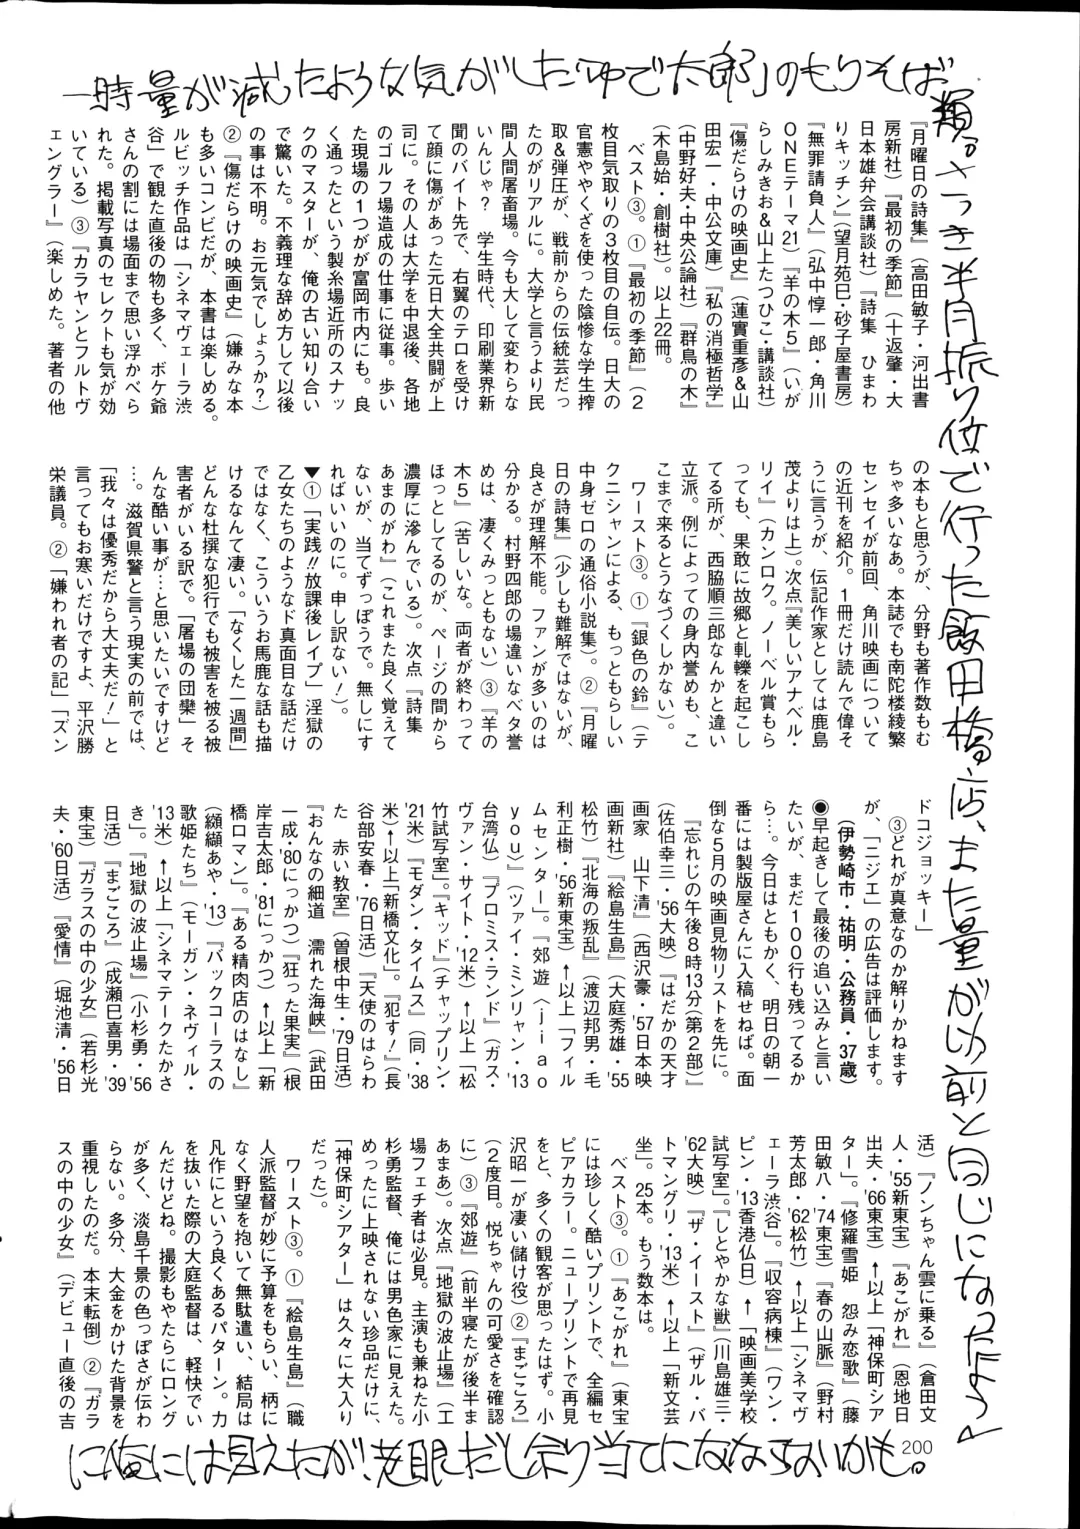 一時量が減したような気がした「ゆで太郎」のもりそば
『月曜日の詩集』（高田敏子・河出書
房新社）『最初の季節』（十返肇・大
日本雄弁会講談社）『詩集　ひまわ
りキッチン』（望月苑巳・砂子屋書房）
『無罪請負人』（弘中惇一郎・角川
ＯＮＥテーマ21）『羊の木５』（いが
らしみきお＆山上たつひこ・講談社）
『傷だらけの映画史』（蓮實重彦＆山
田宏一・中公文庫）『私の消極哲学』
（中野好夫・中央公論社）『群鳥の木』
（木島始・創樹社）。以上22冊。
　ベスト③。①『最初の季節』（２
枚目気取りの３枚目の自伝。日大の
官憲ややくざを使った陰惨な学生搾
取＆弾圧が、戦前からの伝統芸だっ
たのがリアルに。大学と言うより民
間人間屠畜場。今も大して変わらな
いんじゃ？　学生時代、印刷業界新
聞のバイト先で、右翼のテロを受け
て顔に傷があった元日大全共闘が上
司に。その人は大学を中退後、各地
のゴルフ場造成の仕事に従事。歩い
た現場の１つがが富岡市内にも。良
く通ったという製糸場近所のスナッ
クのマスターが、俺の古い知り合い
で驚いた。不義理な辞め方して以後
の事は不明。お元気でしょうか？）
②『傷だらけの映画史』（嫌みな本
も多いコンビだが、本書は楽しめる。
ルビッチ作品は「シネマヴェーラ渋
谷」で観た直後の物も多く、ボケ爺
さんの割には場面まで思い浮かべら
れた。掲載写真のセレクトも気が効
いている）③『カラヤンとフルトヴ
ェングラー』（楽しめた。著者の他
の本もと思うが、分野も著作数もむ
ちゃ多いなあ。本誌でも南陀楼綾繁
センセイが前回、角川映画について
の近刊を紹介。１冊だけ読んで偉そ
うに言うが、伝記作家としては鹿島
茂よりは上）。次点『美しいアナベル・
リイ』（カンロク。ノーベル賞もら
っても、果敢に故郷と軋轢を起こし
てる所が、西脇順三郎なんかと違い
立派。例によっての身内誉めも、こ
こまで来るとうなづくしかない）。
　ワースト③。①『銀色の鈴』（テ
クニシャンによる、もっともらしい
中身ゼロの通俗小説集）。②『月曜
日の詩集』（少しも難解ではないが、
良さが理解不能。ファンが多いのは
分かる。村野四郎の場違いなベタ誉
めは、凄くみっともない）③『羊の
木５』（苦しいな。両者が終わって
ほっとしてるのが、ページの間から
濃厚に滲んでいる）。次点『詩集
あまのがわ』（これまた良く覚えて
ないが、当てずっぽうで。無しにす
ればいいのに。申し訳ない！）。
▼①「実践!!放課後レイプ」淫獄の
乙女たちのようなド真面目な話だけ
ではなく、こういうお馬鹿な話も描
けるなんて凄い。「なくした一週間」
どんな杜撰な犯行でも被害を被る被
害者がいる訳で。「屠場の団欒」そ
んな酷い事が…と思いたいですけど
…。滋賀県警と言う現実の前では、
「我々は優秀だから大丈夫だ！」と
言ってもお寒いだけですよ、平沢勝
栄議員。②「嫌われ者の記」「ズン
ドコジョッキー」
　③どれが真意なのか解りかねます
が、「ニジエ」の広告は評価します。
（伊勢崎市・祐明・公務員・37歳）
●早起きして最後の追い込みと言い
たいが、まだ１００行も残ってるか
ら…。今日はともかく、明日の朝一
番には製版屋さんに入稿せねば。面
倒な５月の映画見物リストを先に。
『忘れじの午後８時13分（第２部）』
（佐伯幸三・'56大映）『はだかの天才
画家　山下清』（西沢豪・'57日本映
画新社）『絵島生島』（大庭秀雄・'55
松竹）『北海の叛乱』（渡辺邦男・毛
利正樹・'56新東宝）↑以上「フィル
ムセンター」。『郊遊〈ｊｉａｏ
ｙｏｕ〉』（ツァイ・ミンリャン・'13
台湾仏）『プロミス・ランド』（ガス・
ヴァン・サイト・'12米）↑以上「松
竹試写室」。『キッド』（チャップリン・
'21米）『モダン・タイムス』（同・'38
米）↑以上「新橋文化」。『犯す！』（長
谷部安春・'76日活）『天使のはらわ
た　赤い教室』（曽根中生・'79日活）
『おんなの細道　濡れた海峡』（武田
一成・'80にっかつ）『狂った果実』（根
岸吉太郎・'81にっかつ）↑以上「新
橋ロマン」。『ある精肉店のはなし』
（纐纈あや・'13）『バックコーラスの
歌姫たち』（モーガン・ネヴィル・
'13米）↑以上「シネマテークたかさ
き」。『地獄の波止場』（小杉勇・'56
日活）『まごころ』（成瀬巳喜男・'39
東宝）『ガラスの中の少女』（若杉光
夫・'60日活）『愛情』（堀池清・'56日
活）『ノンちゃん雲に乗る』（倉田文
人・'55新東宝）『あこがれ』（恩地日
出夫・'66東宝）↑以上「神保町シア
ター」。『修羅雪姫　怨み恋歌』（藤
田敏八・'74東宝）『春の山脈』（野村
芳太郎・'62松竹）↑以上「シネマヴ
ェーラ渋谷」。『収容病棟』（ワン・
ビン・'13香港仏日）↑「映画美学校
試写室」。『しとやかな獣』（川島雄三・
'62大映）『ザ・イースト』（ザル・バ
トマングリ・'13米）↑以上「新文芸
坐」。25本。もう数本は。
　ベスト③。①『あこがれ』（東宝
には珍しく酷いプリントで、全編セ
ピアカラー。ニュープリントで再見
をと、多くの観客が思ったはず。小
沢昭一が凄い儲け役）②『まごころ』
（２度目。悦ちゃんの可愛さを確認
に）③『郊遊』（前半寝たが後半ま
あまあ）。次点『地獄の波止場』（工
場フェチ者は必見。主演も兼ねた小
杉勇監督、俺には男色家に見えた。
めったに上映されない珍品だけに、
「神保町シアター」は久々に大入り
だった）。
　ワースト③。①『絵島生島』（職
人派監督が妙に予算をもらい、柄に
なく野望を抱いて無駄遣い、結局は
凡作にという良くあるパターン。力
を抜いた際の大庭監督は、軽快でい
んだけどね。撮影もやたらにロング
が多く、淡島千景の色っぽさが伝わ
らない。多分、大金をかけた背景を
重視したのだ。本末転倒）②『ガラ
スの中の少女』（デビュー直後の吉
半月振り位で行った飯田橋店、また量が以前と同じになったよう
に俺には見えたが！老眼だし余り当てにならないかも。
200